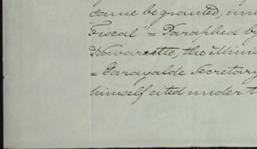 same be granted, un
Fiscal" = Paraphed by
Navarrette, the Minis
= Garayalde Secretary
himself cited under t